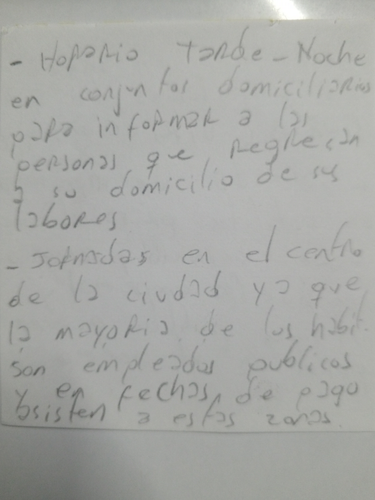 - Horario Tarde - Noche
en conjuntos domiciliarios
para informar a las
personas que regresan
a su domicilio de sus
labores
- Jornadas en el centro
de la ciudad ya que
la mayoria de los habit.
son empleados publicos
y en fechas de pago
asisten a estas zonas.